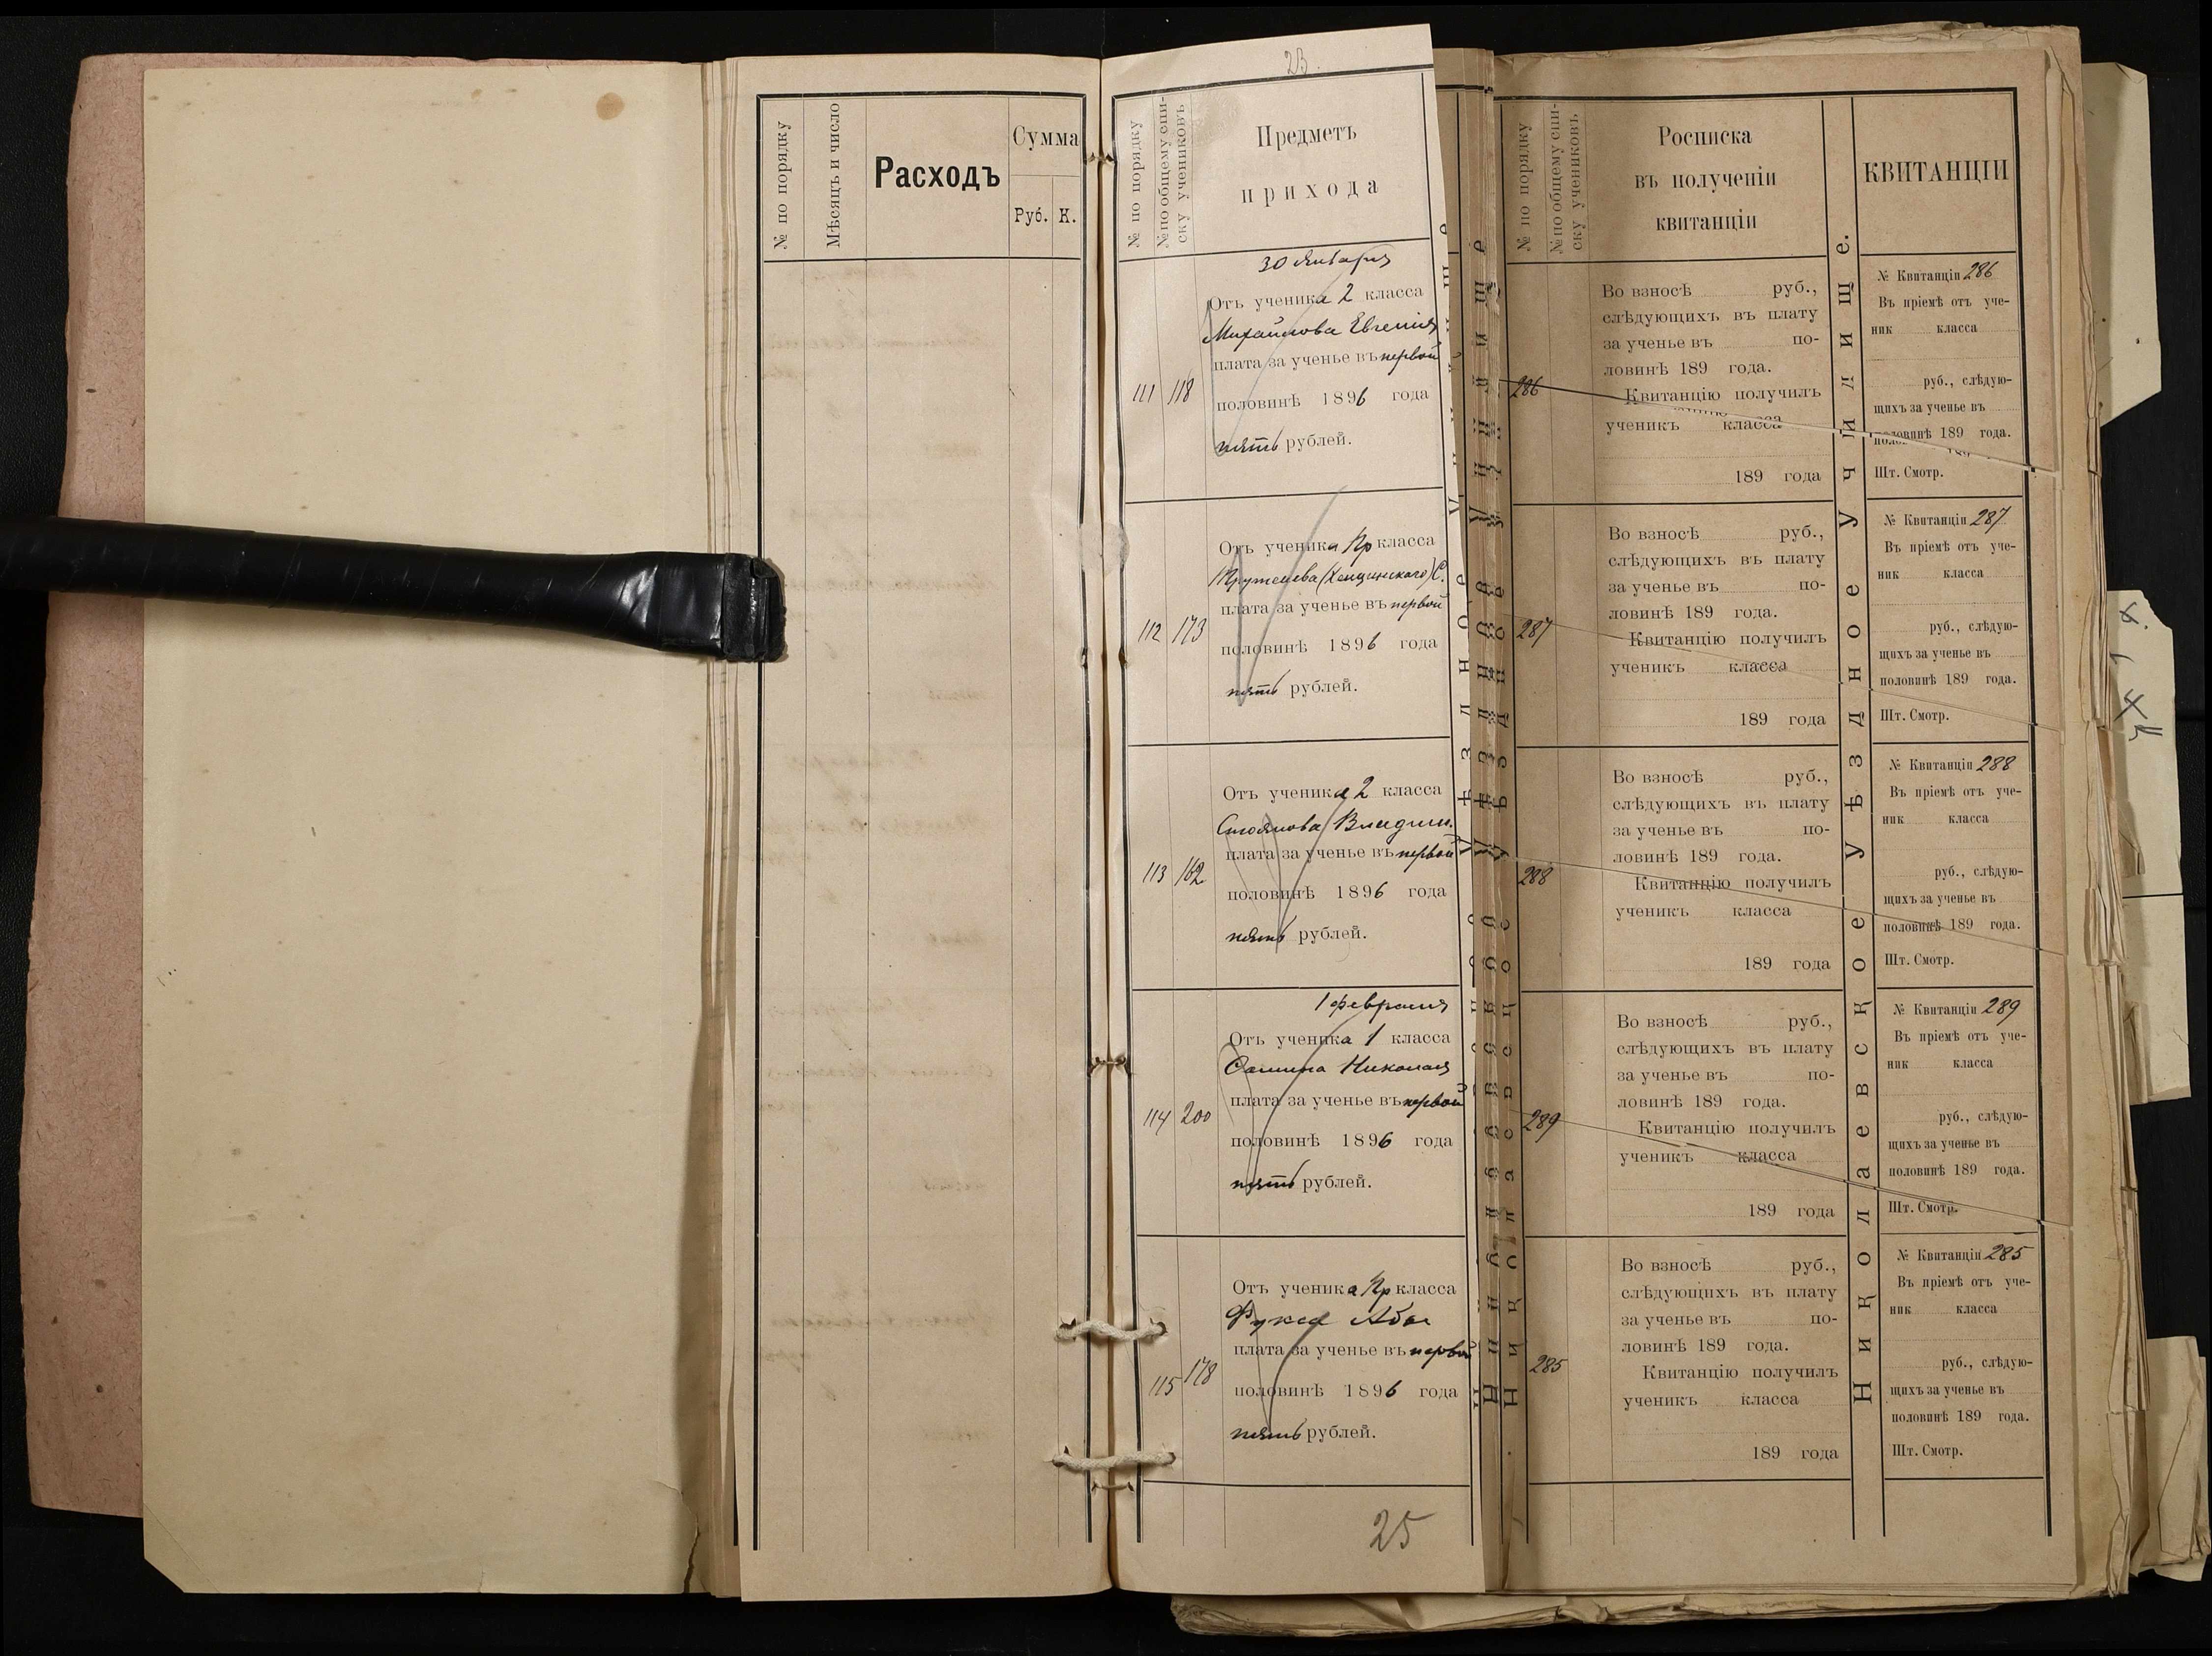 № по порядку
Мѣсяцъ и число
Расходъ
Сумма
Руб. К.
23.
№ по порядку
№ по общему спи-
ску учениковъ
Предметъ
прихода
30 января
Отъ ученика 2 класса
Михайлова Евгенія
плата за ученье въ первой
111 118
половинѣ 1896 года
пять рублей.
Отъ ученика Пр класса
С.
плата за ученье въ первой
112 173
половинѣ 1896 года
пять рублей.
Отъ ученика 2 класса
Стоянова Владим.
плата за ученье въ первой
113 162
половинѣ 1896 года
пять рублей.
1 февраля
Отъ ученика 1 класса
Николая
плата за ученье въ первой
114 200
половинѣ 1896 года
пять рублей.
Отъ ученика Пр класса
Фукса Абы
плата за ученье въ первой
115 178
половинѣ 1896 года
пять рублей.
25
№ по порядку
№ по общему спи-
ску учениковъ
Росписка
въ полученіи
квитанціи
286
Во взносѣ руб.,
слѣдующихъ въ плату
за ученье въ по-
ловинѣ 189 года.
Квитанцію получилъ
ученикъ класса
189 года
287
Во взносѣ руб.,
слѣдующихъ въ плату
за ученье въ по-
ловинѣ 189 года.
Квитанцію получилъ
ученикъ класса
189 года
288
Во взносѣ руб.,
слѣдующихъ въ плату
за ученье въ по-
ловинѣ 189 года.
Квитанцію получилъ
ученикъ класса
189 года
289
Во взносѣ руб.,
слѣдующихъ въ плату
за ученье въ по-
ловинѣ 189 года.
Квитанцію получилъ
ученикъ класса
189 года
285
Во взносѣ руб.,
слѣдующихъ въ плату
за ученье въ по-
ловинѣ 189 года.
Квитанцію получилъ
ученикъ класса
189 года
Николаевское Уѣздное Училище.
КВИТАНЦІИ
№ Квитанціи 286
Въ пріемѣ отъ уче-
ник класса
руб., слѣдую-
щихъ за ученье въ
половинѣ 189 года.
Шт. Смотр.
№ Квитанціи 287
Въ пріемѣ отъ уче-
ник класса
руб., слѣдую-
щихъ за ученье въ
половинѣ 189 года.
Шт. Смотр.
№ Квитанціи 288
Въ пріемѣ отъ уче-
ник класса
руб., слѣдую-
щихъ за ученье въ
половинѣ 189 года.
Шт. Смотр.
№ Квитанціи 289
Въ пріемѣ отъ уче-
ник класса
руб., слѣдую-
щихъ за ученье въ
половинѣ 189 года.
Шт. Смотр.
№ Квитанціи 285
Въ пріемѣ отъ уче-
ник класса
руб., слѣдую-
щихъ за ученье въ
половинѣ 189 года.
Шт. Смотр.